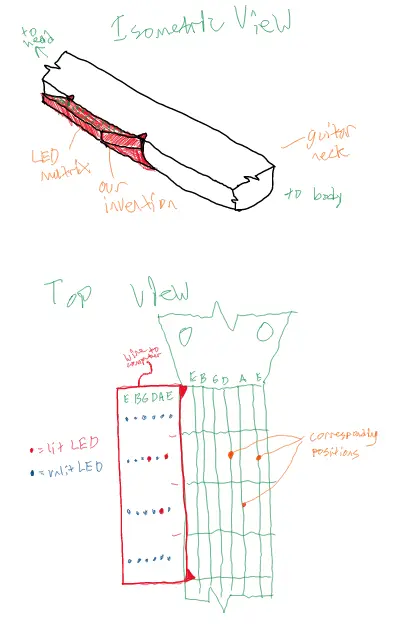 Isometric View
to
head
LED
matrix
our
invention
guitar
neck
to body
Top View
wire to
computer
E B G D A E
E B G D A E
• = lit LED
• = unlit LED
corresponding
positions